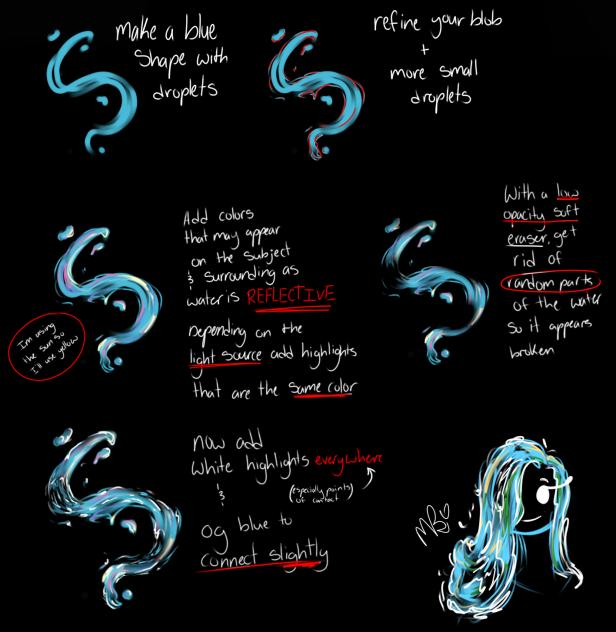 make a blue
shape with
droplets
refine your blob
+
more small
droplets
Add colors
that may appear
on the subject
& surrounding as
water is REFLECTIVE
Depending on the
light source add highlights
that are the same color
Im using
the sun so
I'll use yellow
With a low
opacity soft
eraser, get
rid of
random parts
of the water
so it appears
broken
now add
white highlights everywhere
(especially points
of contact)
&
og blue to
connect slightly